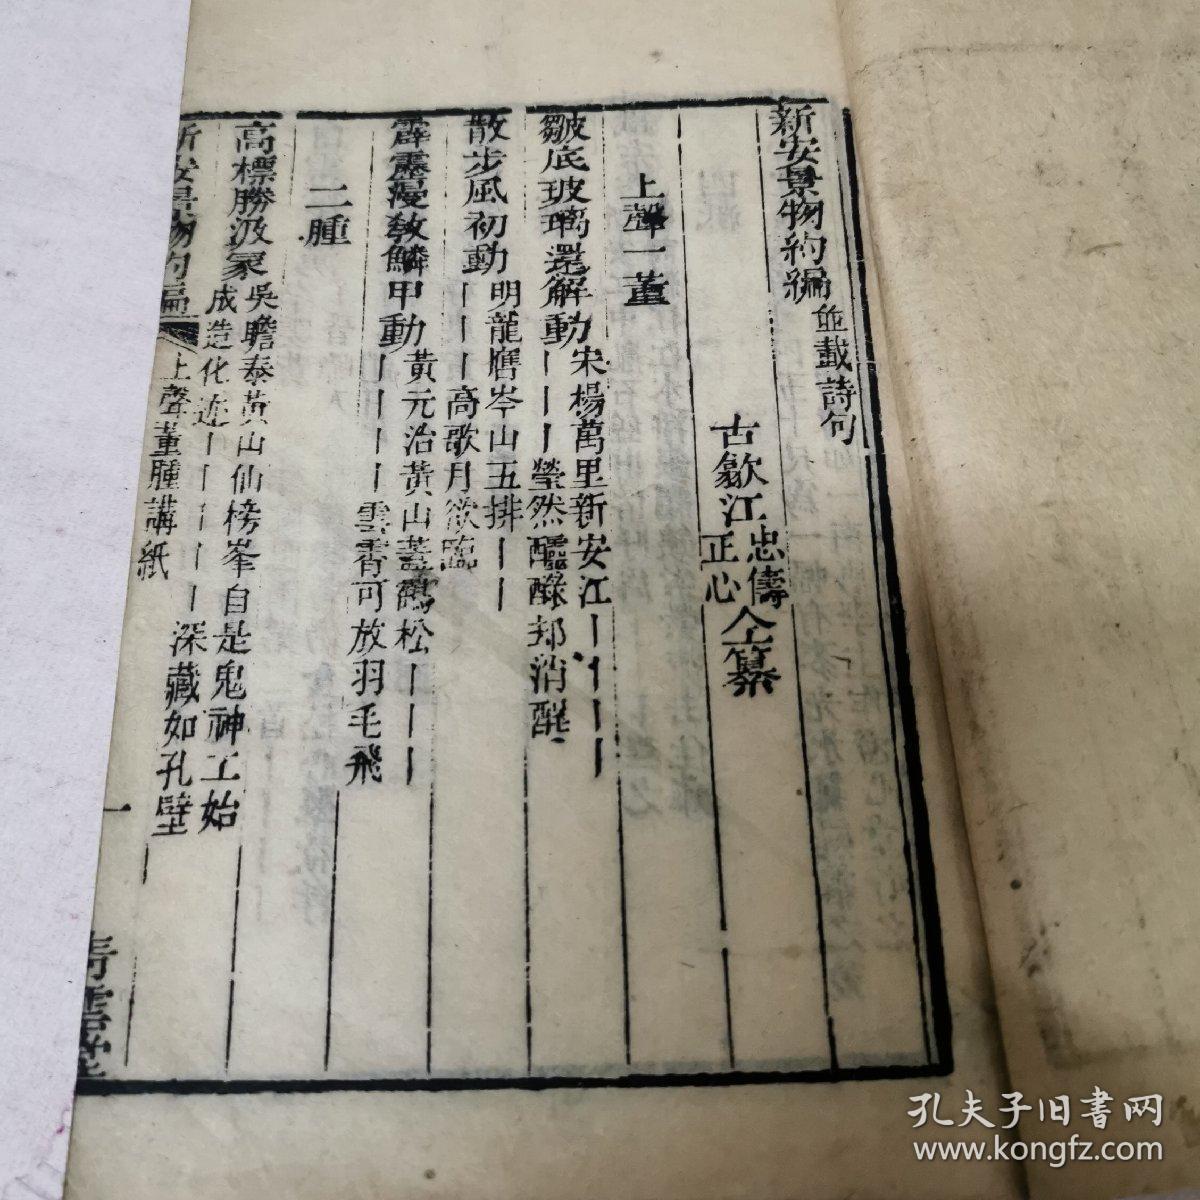 新安景物約編 並載詩句
古歙江 忠儔 正心 仝纂
上聲一董
皺底玻璃還解動 宋楊萬里新安江丨丨丨丨
丨丨丨瑩然醽醁却消醒
散步風初動 明龍膺岑山五排丨丨
丨丨丨高歌月欲臨
霹靂漫教鱗甲動 黃元治黃山蓋鶴松丨丨丨
丨丨丨丨雲霄可放羽毛飛
二腫
高標勝汲冢 吳瞻泰黃山仙榜峯自是鬼神工始
成造化迹丨丨丨丨丨深藏如孔壁
新安景物約編 上聲董腫講紙 一 青雲堂
孔夫子旧書网
www.kongfz.com